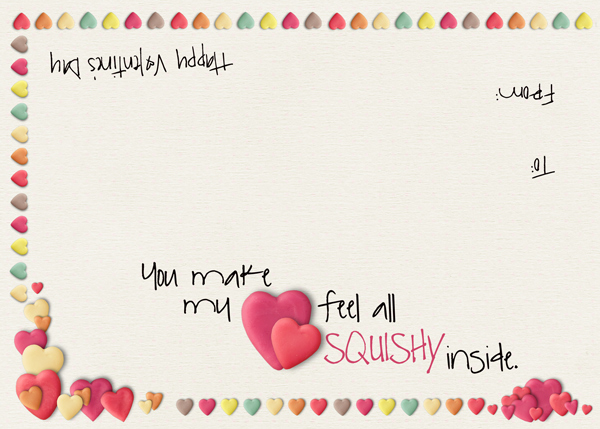 To:
From:
Happy Valentine's Day
You make
my feel all
SQUISHY inside.